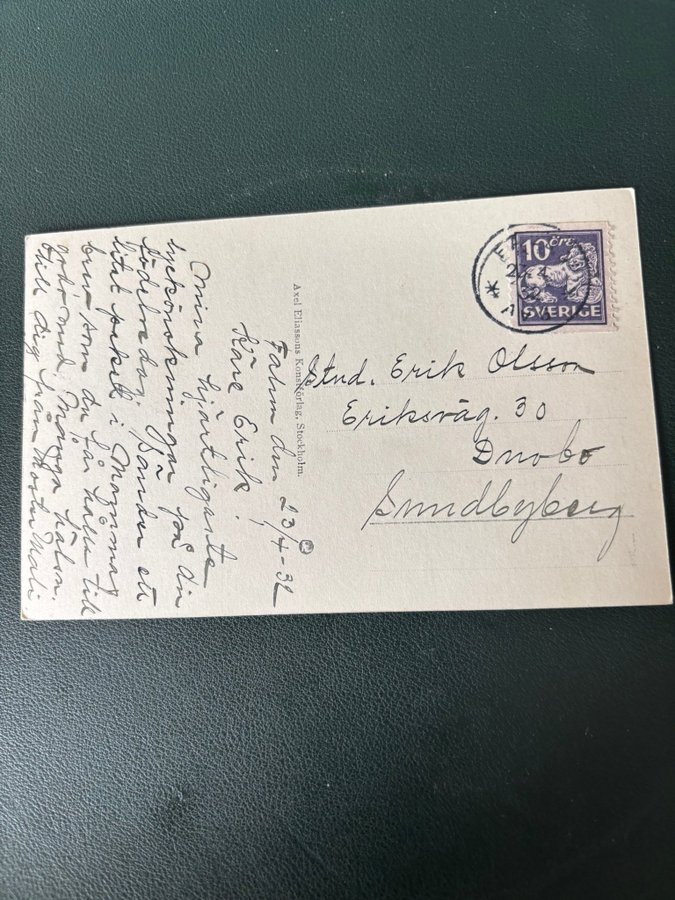 Falun den 23/4-32
Käre Erik.
Mina hjärtligaste
lyckönskningar på din
födelsedag, sänder ett
litet paket i
som du får hålla till
godo med. Många hälsn.
till dig från Moster Mali
Axel Eliassons Konstförlag, Stockholm.
10 öre
SVERIGE
Stud. Erik Olsson
Eriksväg. 30
Duvbo
Sundbyberg